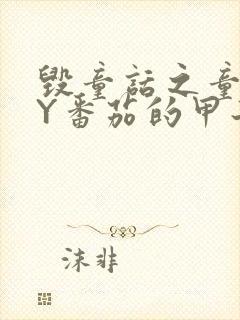 毁童话之童
Y番茄的甲
沫非